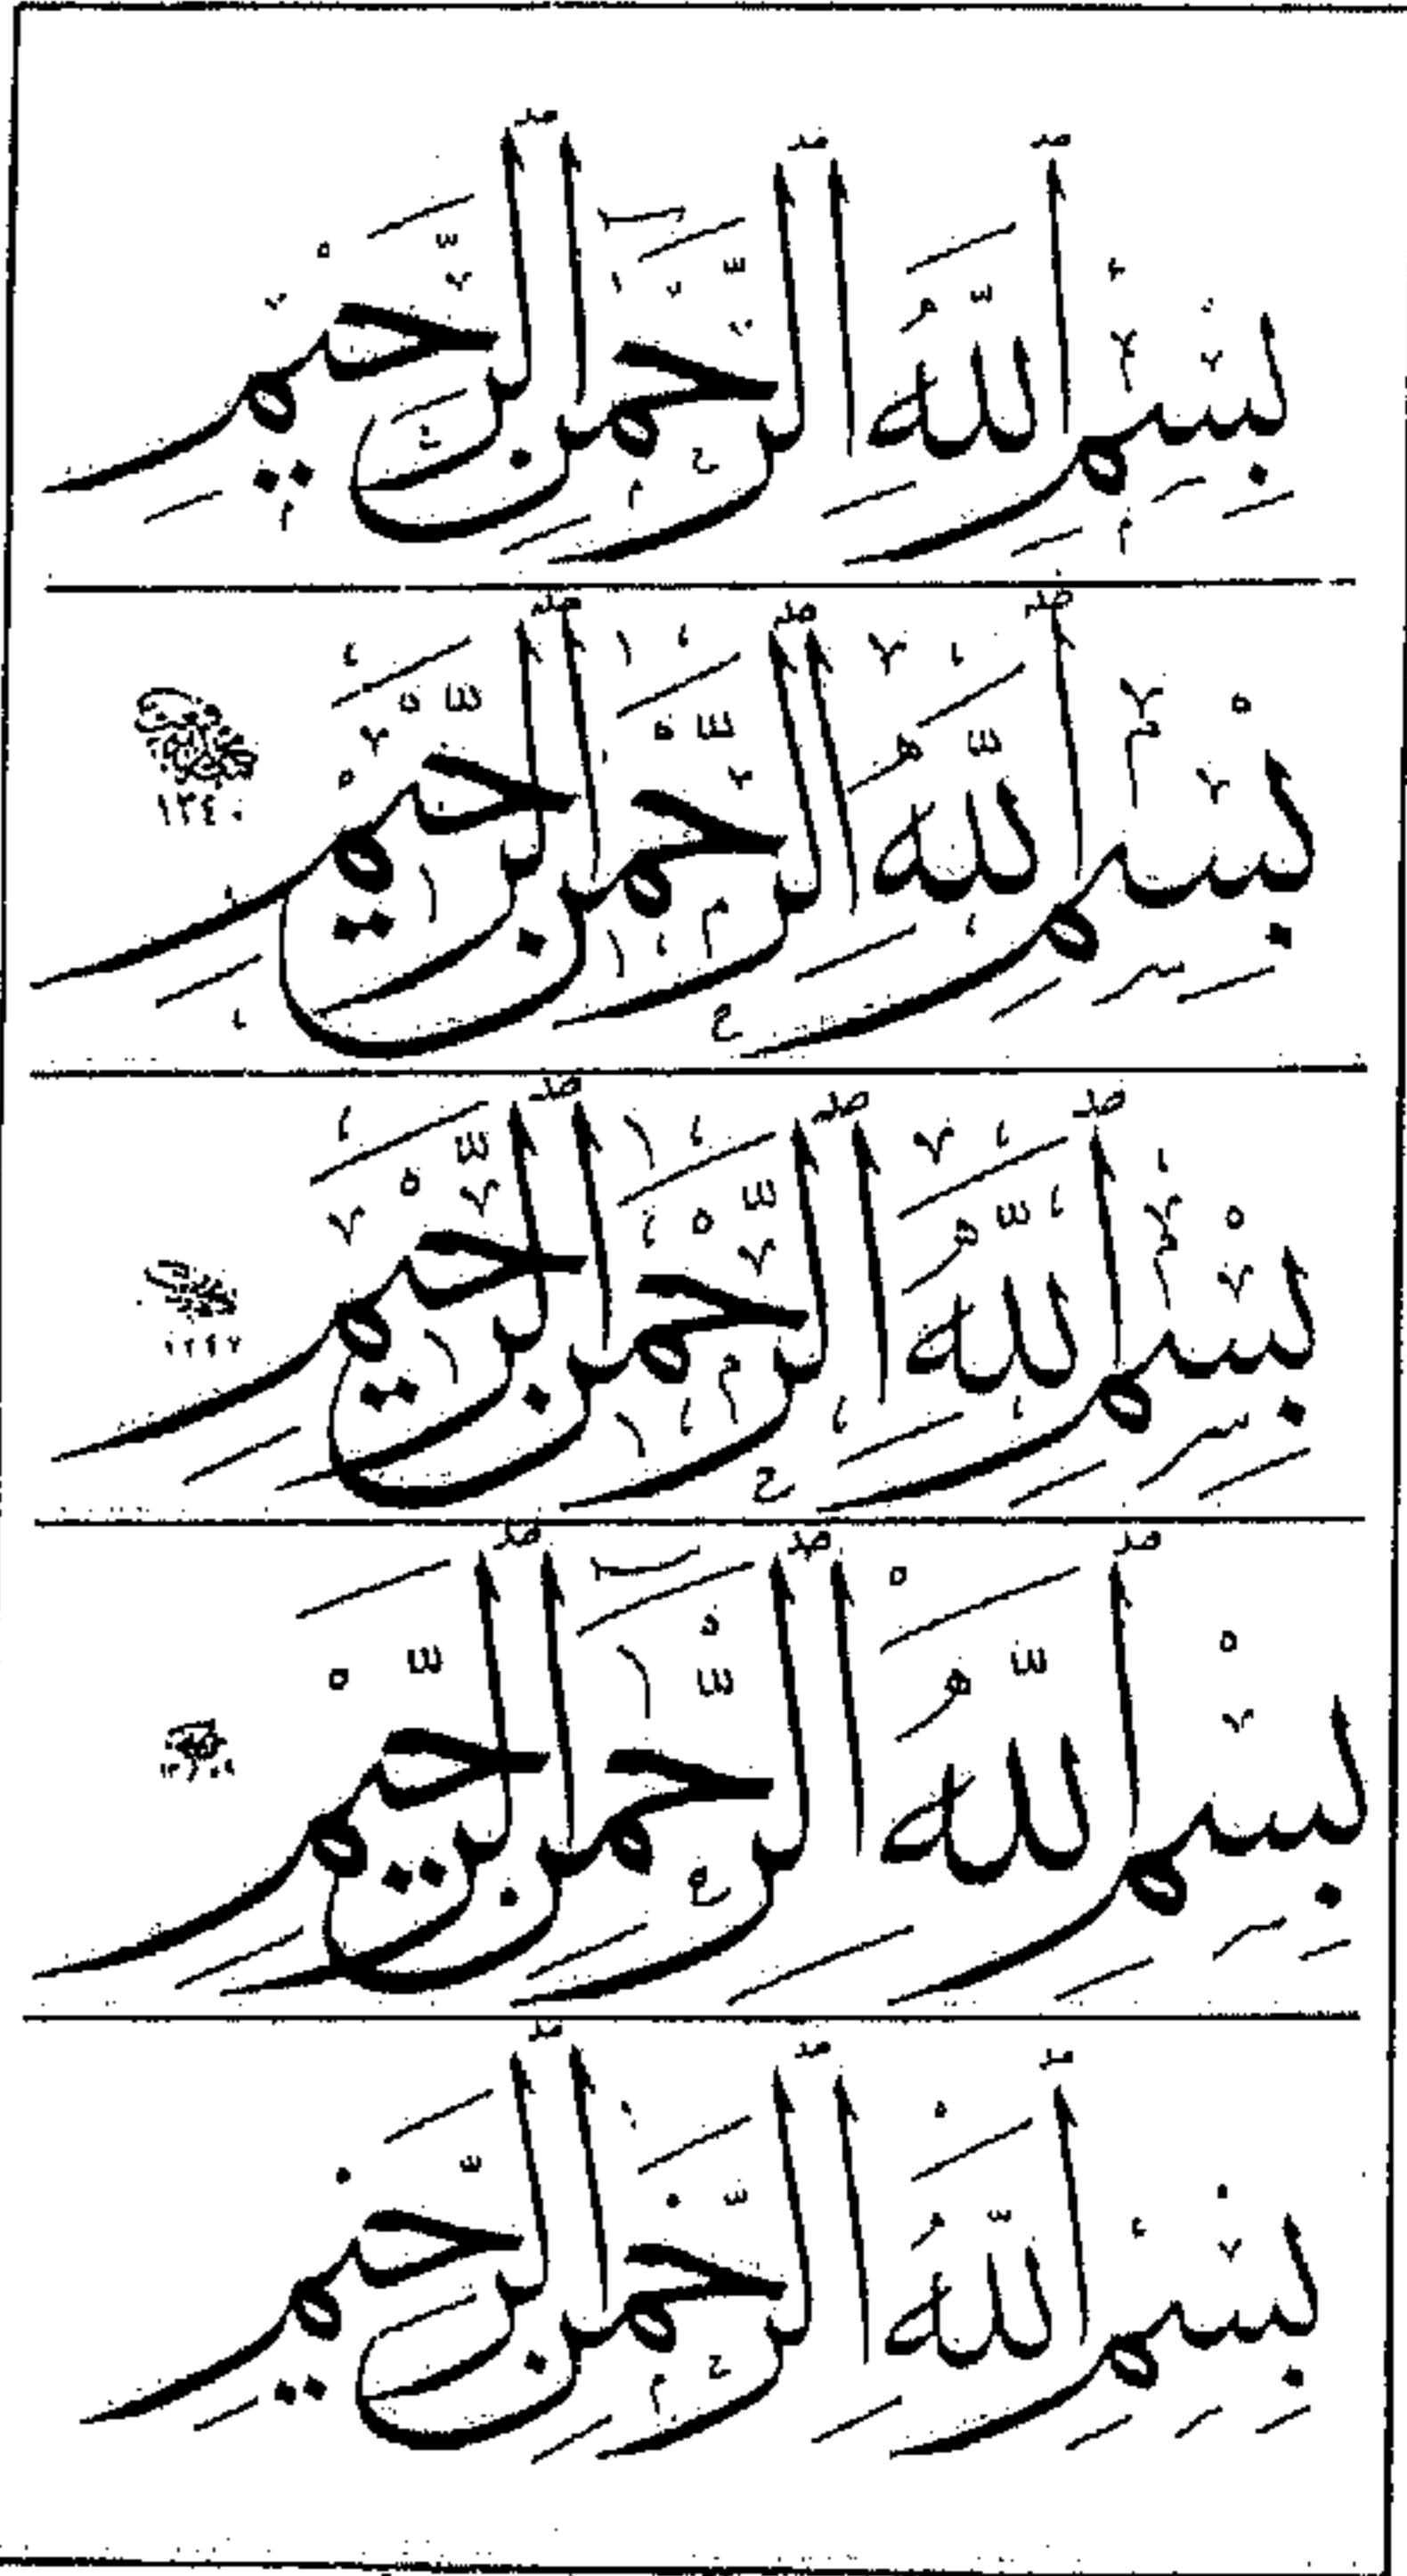 بِسْمِ اللَّهِ الرَّحْمٰنِ الرَّحِيمِ
بِسْمِ اللَّهِ الرَّحْمٰنِ الرَّحِيمِ
١٢٤٠
بِسْمِ اللَّهِ الرَّحْمٰنِ الرَّحِيمِ
بِسْمِ اللَّهِ الرَّحْمٰنِ الرَّحِيمِ
بِسْمِ اللَّهِ الرَّحْمٰنِ الرَّحِيمِ